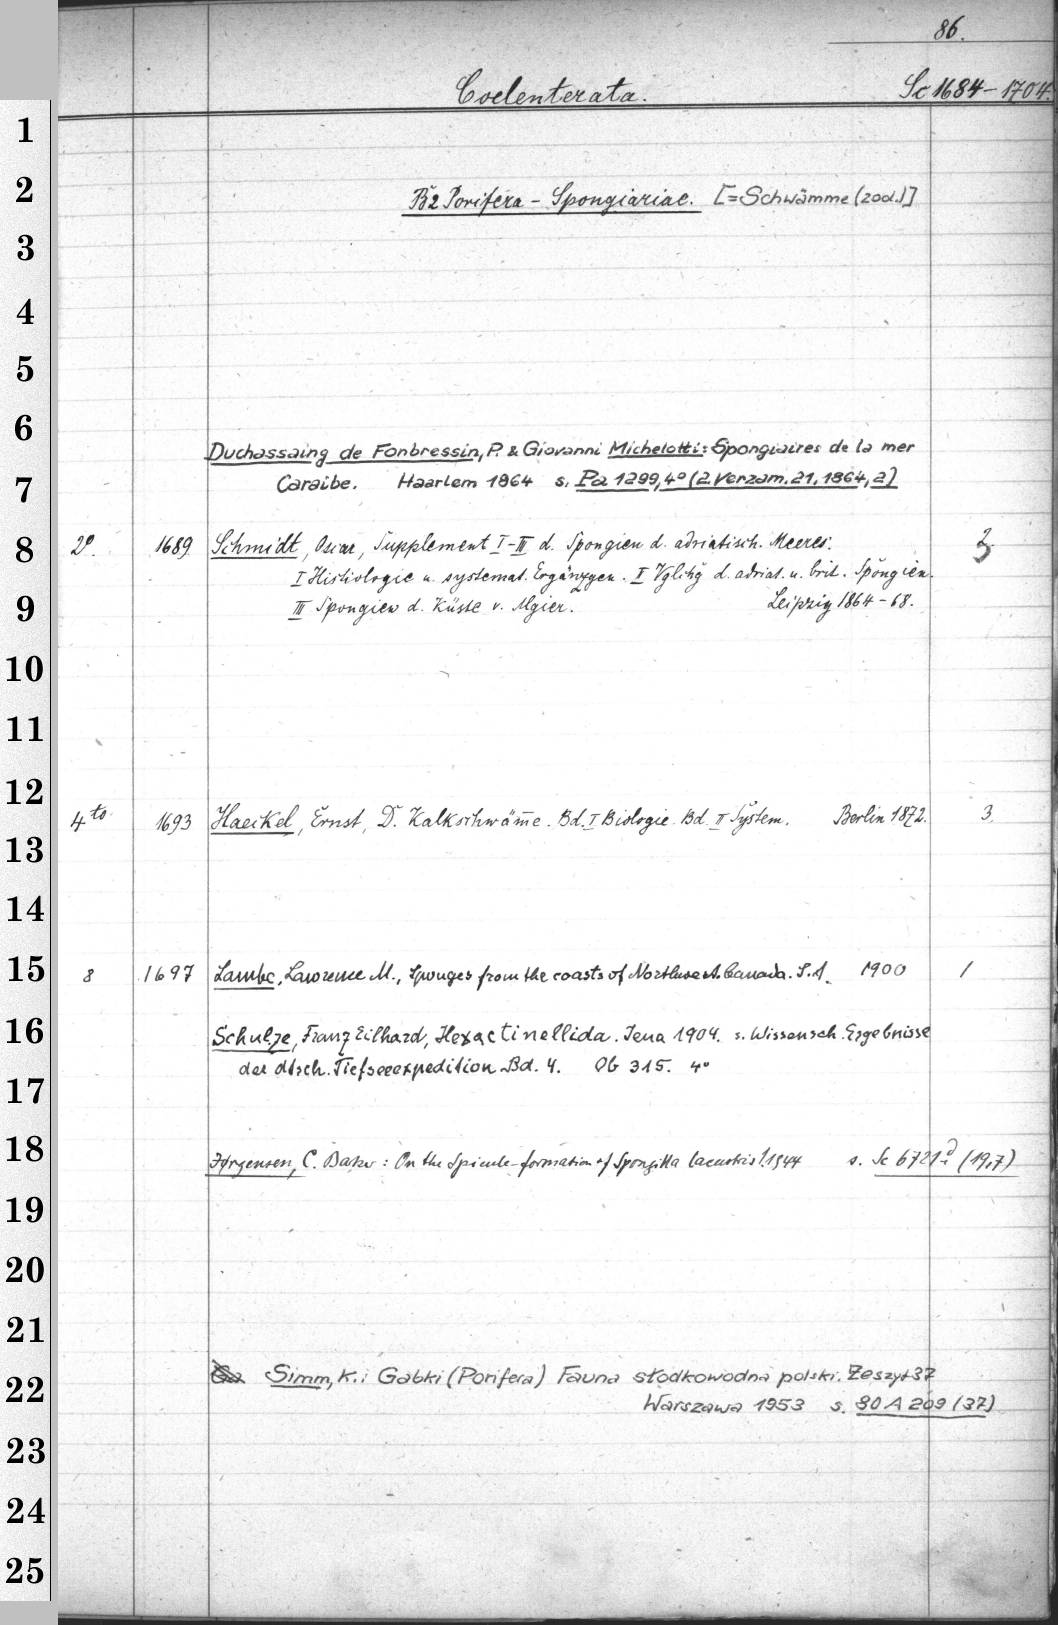 86.
Coelenterata. Sc 1684-1704.
1
2 B2 Porifera - Spongiariae. [=Schwämme (zool.)]
3
4
5
6 Duchassaing de Fonbressin, P. & Giovanni Michelotti: Spongiaires de la mer
7 Caraibe. Haarlem 1864 s. Pa 1299, 4° (2. Verzam. 21, 1864, 2)
8 2°. 1689 Schmidt, Oscar, Supplement I-III d. Spongien d. adriatisch. Meeres.
I Histiologie u. systemat. Ergänzgen. II Vglchg d. adriat. u. brit. Spongien.
9 III Spongien d. Küste v. Algier. Leipzig 1864-68.
10
11
12 4to 1693 Haeckel, Ernst, D. Kalkschwäm̅e. Bd. I Biologie. Bd. II System. Berlin 1872. 3
13
14
15 8 1697 Lambe, Lawrence M., Sponges from the coasts of Northeast. Canada. S.A. 1900 1
16 Schulze, Franz Eilhard, Hexactinellida. Jena 1904. s. Wissensch. Ergebnisse
der dtsch. Tiefseeexpedition Bd. 4. Ob 315. 4°
17
18 Jørgensen, C. Barker: On the Spicule-formation of Spongilla lacustris 1. 1944 s. Sc 6721 (19,7)
19
20
21
22 Simm, K.: Gabki (Porifera) Fauna słodkowodna polski. Zeszyt 37
Warszawa 1953 s. 80 A 209 (37)
23
24
25